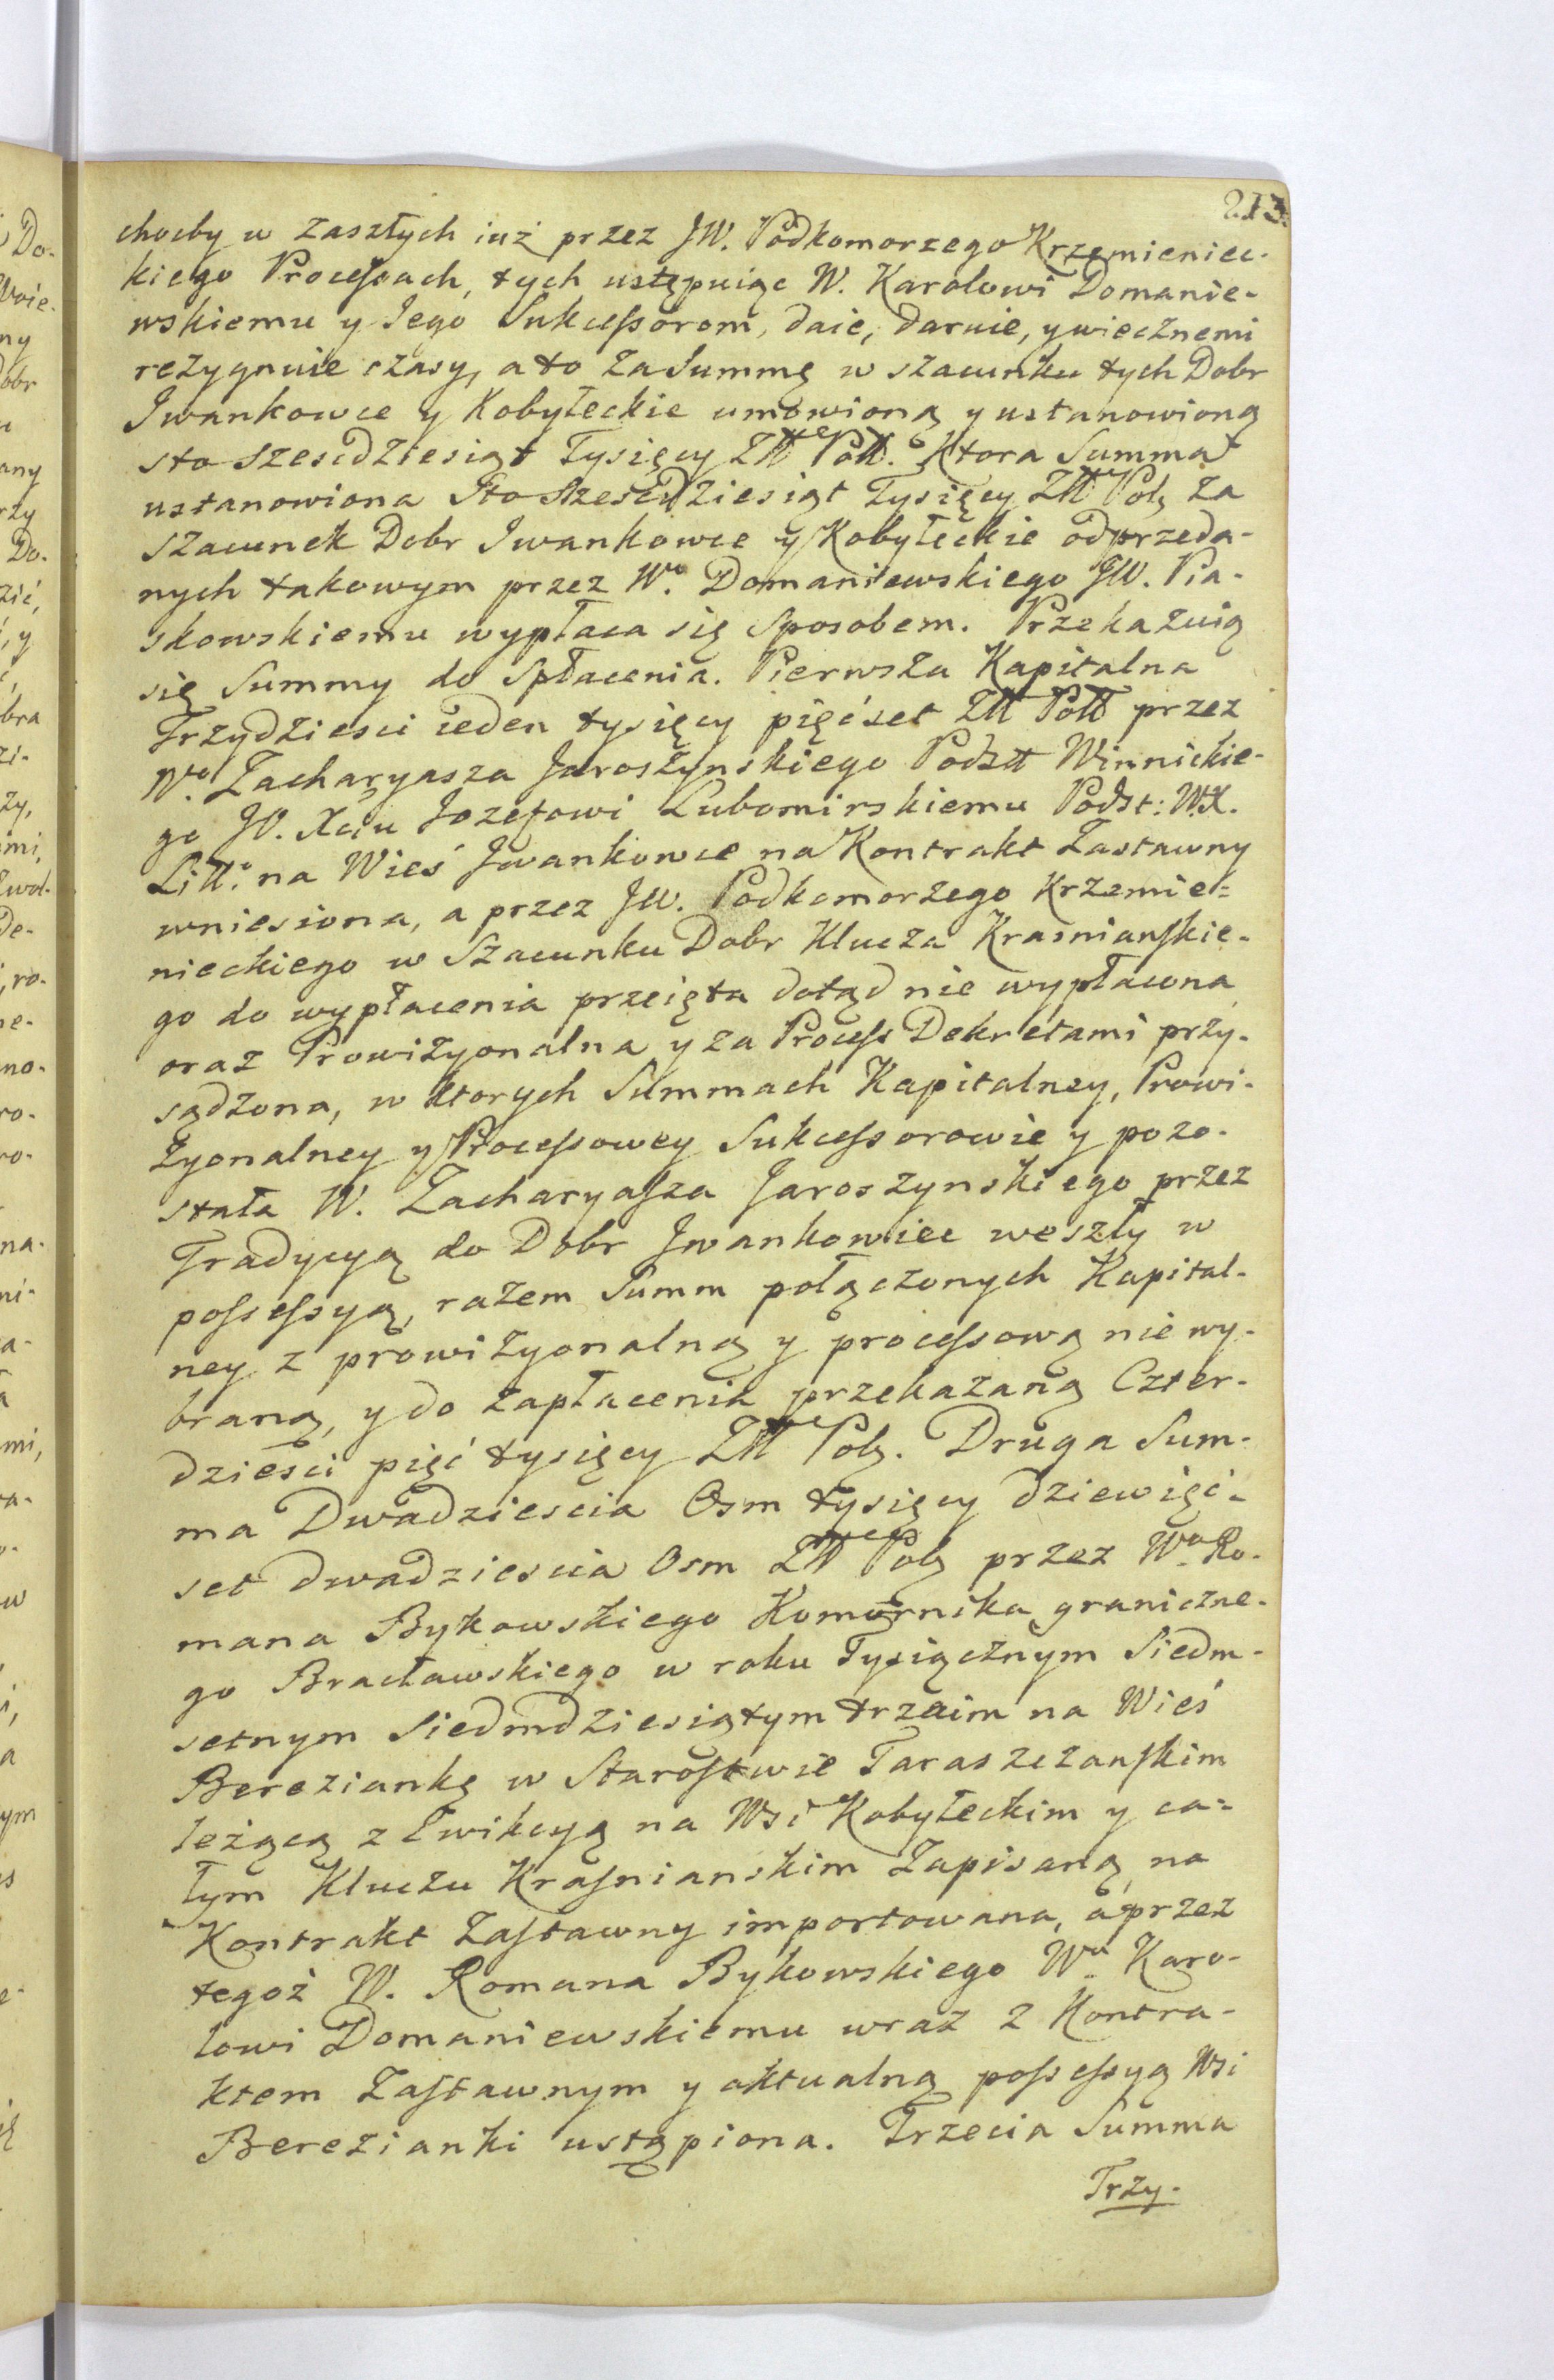 213.
choćby w zaszłych iuż przez JW. Podkomorzego Krzemieniec-
kiego Processach, tych ustępuiąc W. Karolowi Domanie-
wskiemu y Jego Sukcessorom, daie, daruie, y wiecznemi
rezygnuie czasy, a to za Summę w szacunku tych Dobr
Iwankowce y Kobyłeckie umowioną y ustanowioną
sto szescdziesiąt Tysięcy Złł Poll. Ktora Summa
ustanowiona Sto Szescdziesiąt Tysięcy Złł Pol za
szacunek Dobr Iwankowce y Kobyłeckie odprzeda-
nych takowym przez Wo. Domaniewskiego JW. Pia-
skowskiemu wypłaca się Sposobem. Przekazuią
się Summy do Spłacenia. Pierwsza Kapitalna
Trzydziesci ieden tysięcy pięćset Złł Poll przez
Wo. Zacharyasza Jaroszynskiego Podstt Winnickie-
go JO. Xciu Jozefowi Lubomirskiemu Podst: WX.
Litt: na Wieś Iwankowce na Kontrakt Zastawny
wniesiona, a przez JW. Podkomorzego Krzemie-
nieckiego w Szacunku Dobr Klucza Krasnianskie-
go do wypłacenia przeięta dotąd nie wypłacona
oraz Prowizyonalna y za Process Dekretami przy-
sądzona, w ktorych Summach Kapitalney, Prowi-
zyonalney y Processowey Sukcessorowie y pozo-
stała W. Zacharyasza Jaroszynskiego przez
Tradycyą do Dobr Iwankowiec weszły w
possessyą, razem Summ połączonych Kapital-
ney z prowizyonalną y processową nie wy-
braną, y do zapłacenia przekazaną Czter-
dziesci pięć tysięcy Złł Pol. Druga Sum-
ma Dwadziescia Osm tysięcy dziewięć-
set dwadziescia Osm Złł Pol przez Wo. Ro-
mana Bykowskiego Komornika graniczne-
go Bracławskiego w roku Tysiącznym Siedm-
setnym Siedmdziesiątym trzecim na Wieś
Bereziankę w Starostwie Taraszczanskim
leżącą z Ewikcyą na Wsi Kobyłeckim y ca-
łym Kluczu Krasnianskim Zapisaną na
Kontrakt Zastawny importowana, a przez
tegoż W. Romana Bykowskiego Wu. Karo-
lowi Domaniewskiemu wraz z Kontra-
ktem Zastawnym y aktualną possessyą Wsi
Berezianki ustąpiona. Trzecia Summa
Trzy-